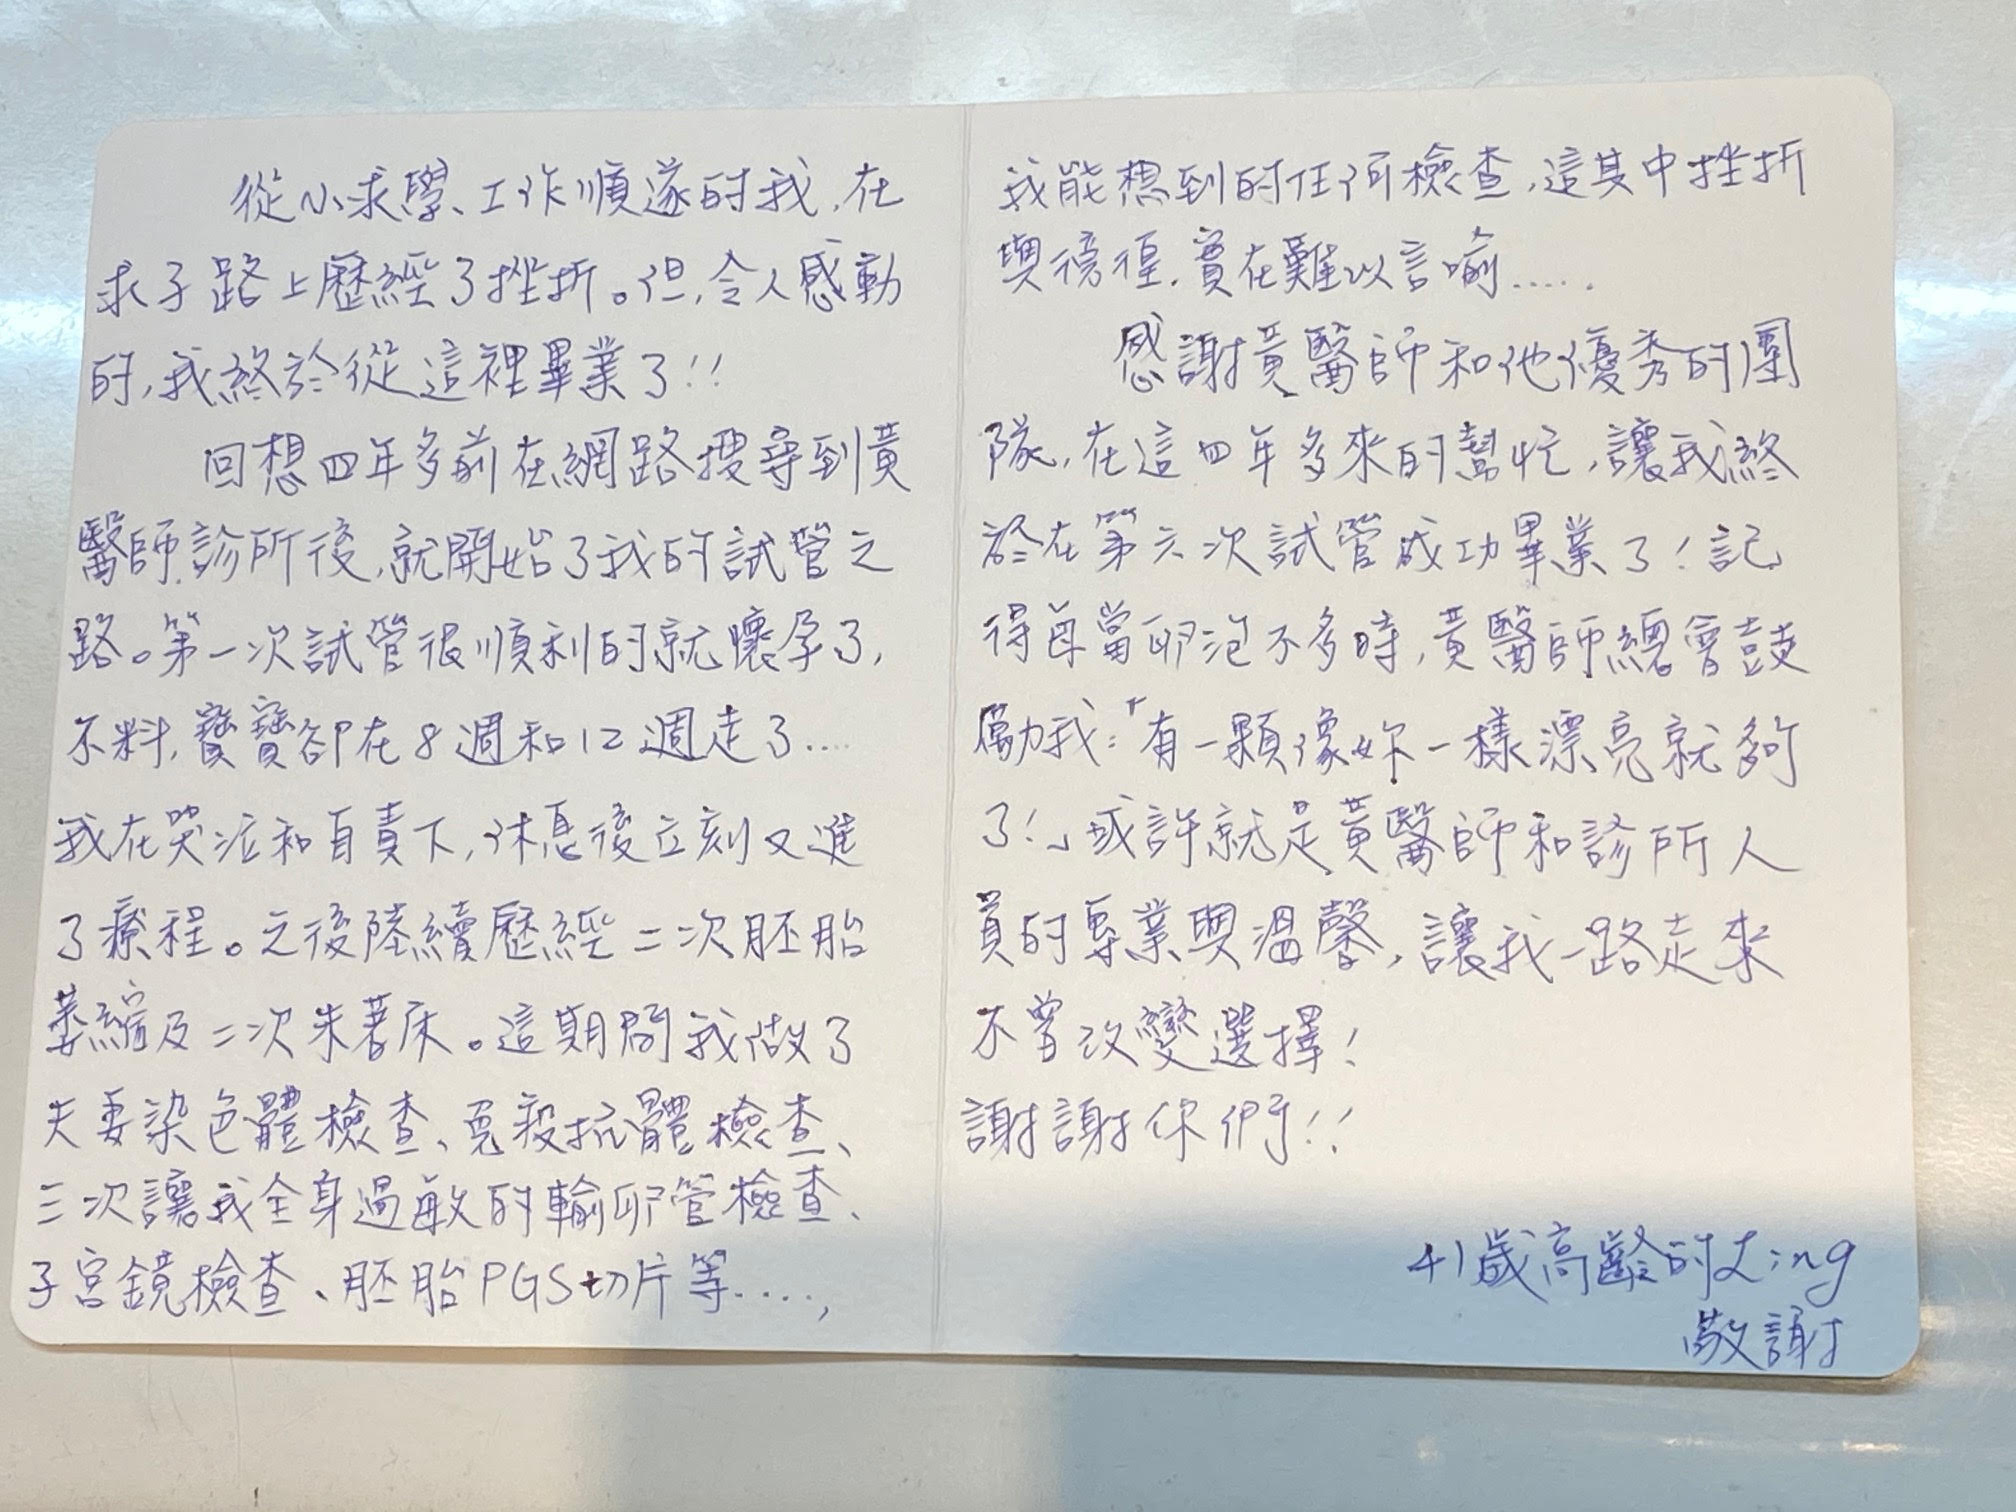 從小求學、工作順遂的我，在
求子路上歷經了挫折。但，令人感動
的，我終於從這裡畢業了!!
回想四年多前在網路搜尋到黃
醫師診所後，就開始了我的試管之
路。第一次試管很順利的就懷孕了，
不料，寶寶卻在8週和12週走了....
我在哭泣和自責下，休息後立刻又進
了療程。之後陸續歷經二次胚胎
萎縮及二次未著床。這期間我做了
夫妻染色體檢查、免疫抗體檢查、
三次讓我全身過敏的輸卵管檢查、
子宮鏡檢查、胚胎PGS切片等....，
我能想到的任何檢查，這其中挫折
與徬徨，實在難以言喻.....
感謝黃醫師和他優秀的團
隊，在這四年多來的幫忙，讓我終
於在第六次試管成功畢業了！記
得每當卵泡不多時，黃醫師總會鼓
勵我：「有一顆像妳一樣漂亮就夠
了！」或許就是黃醫師和診所人
員的專業與溫馨，讓我一路走來
不曾改變選擇！
謝謝你們!!
41歲高齡的ㄤing
敬謝